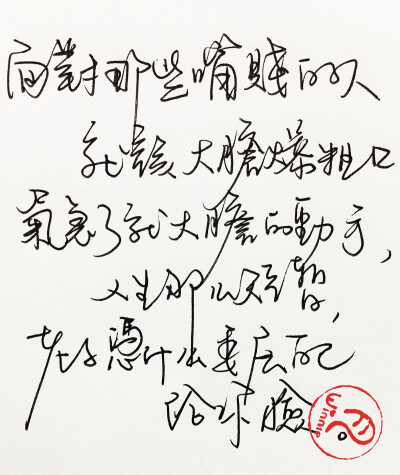 面對那些嘴賤的人
就該大膽爆粗口
氣急了就大膽的動手，
人生那么短暫，
老子憑什么委屈自己
给你臉。
Winnie